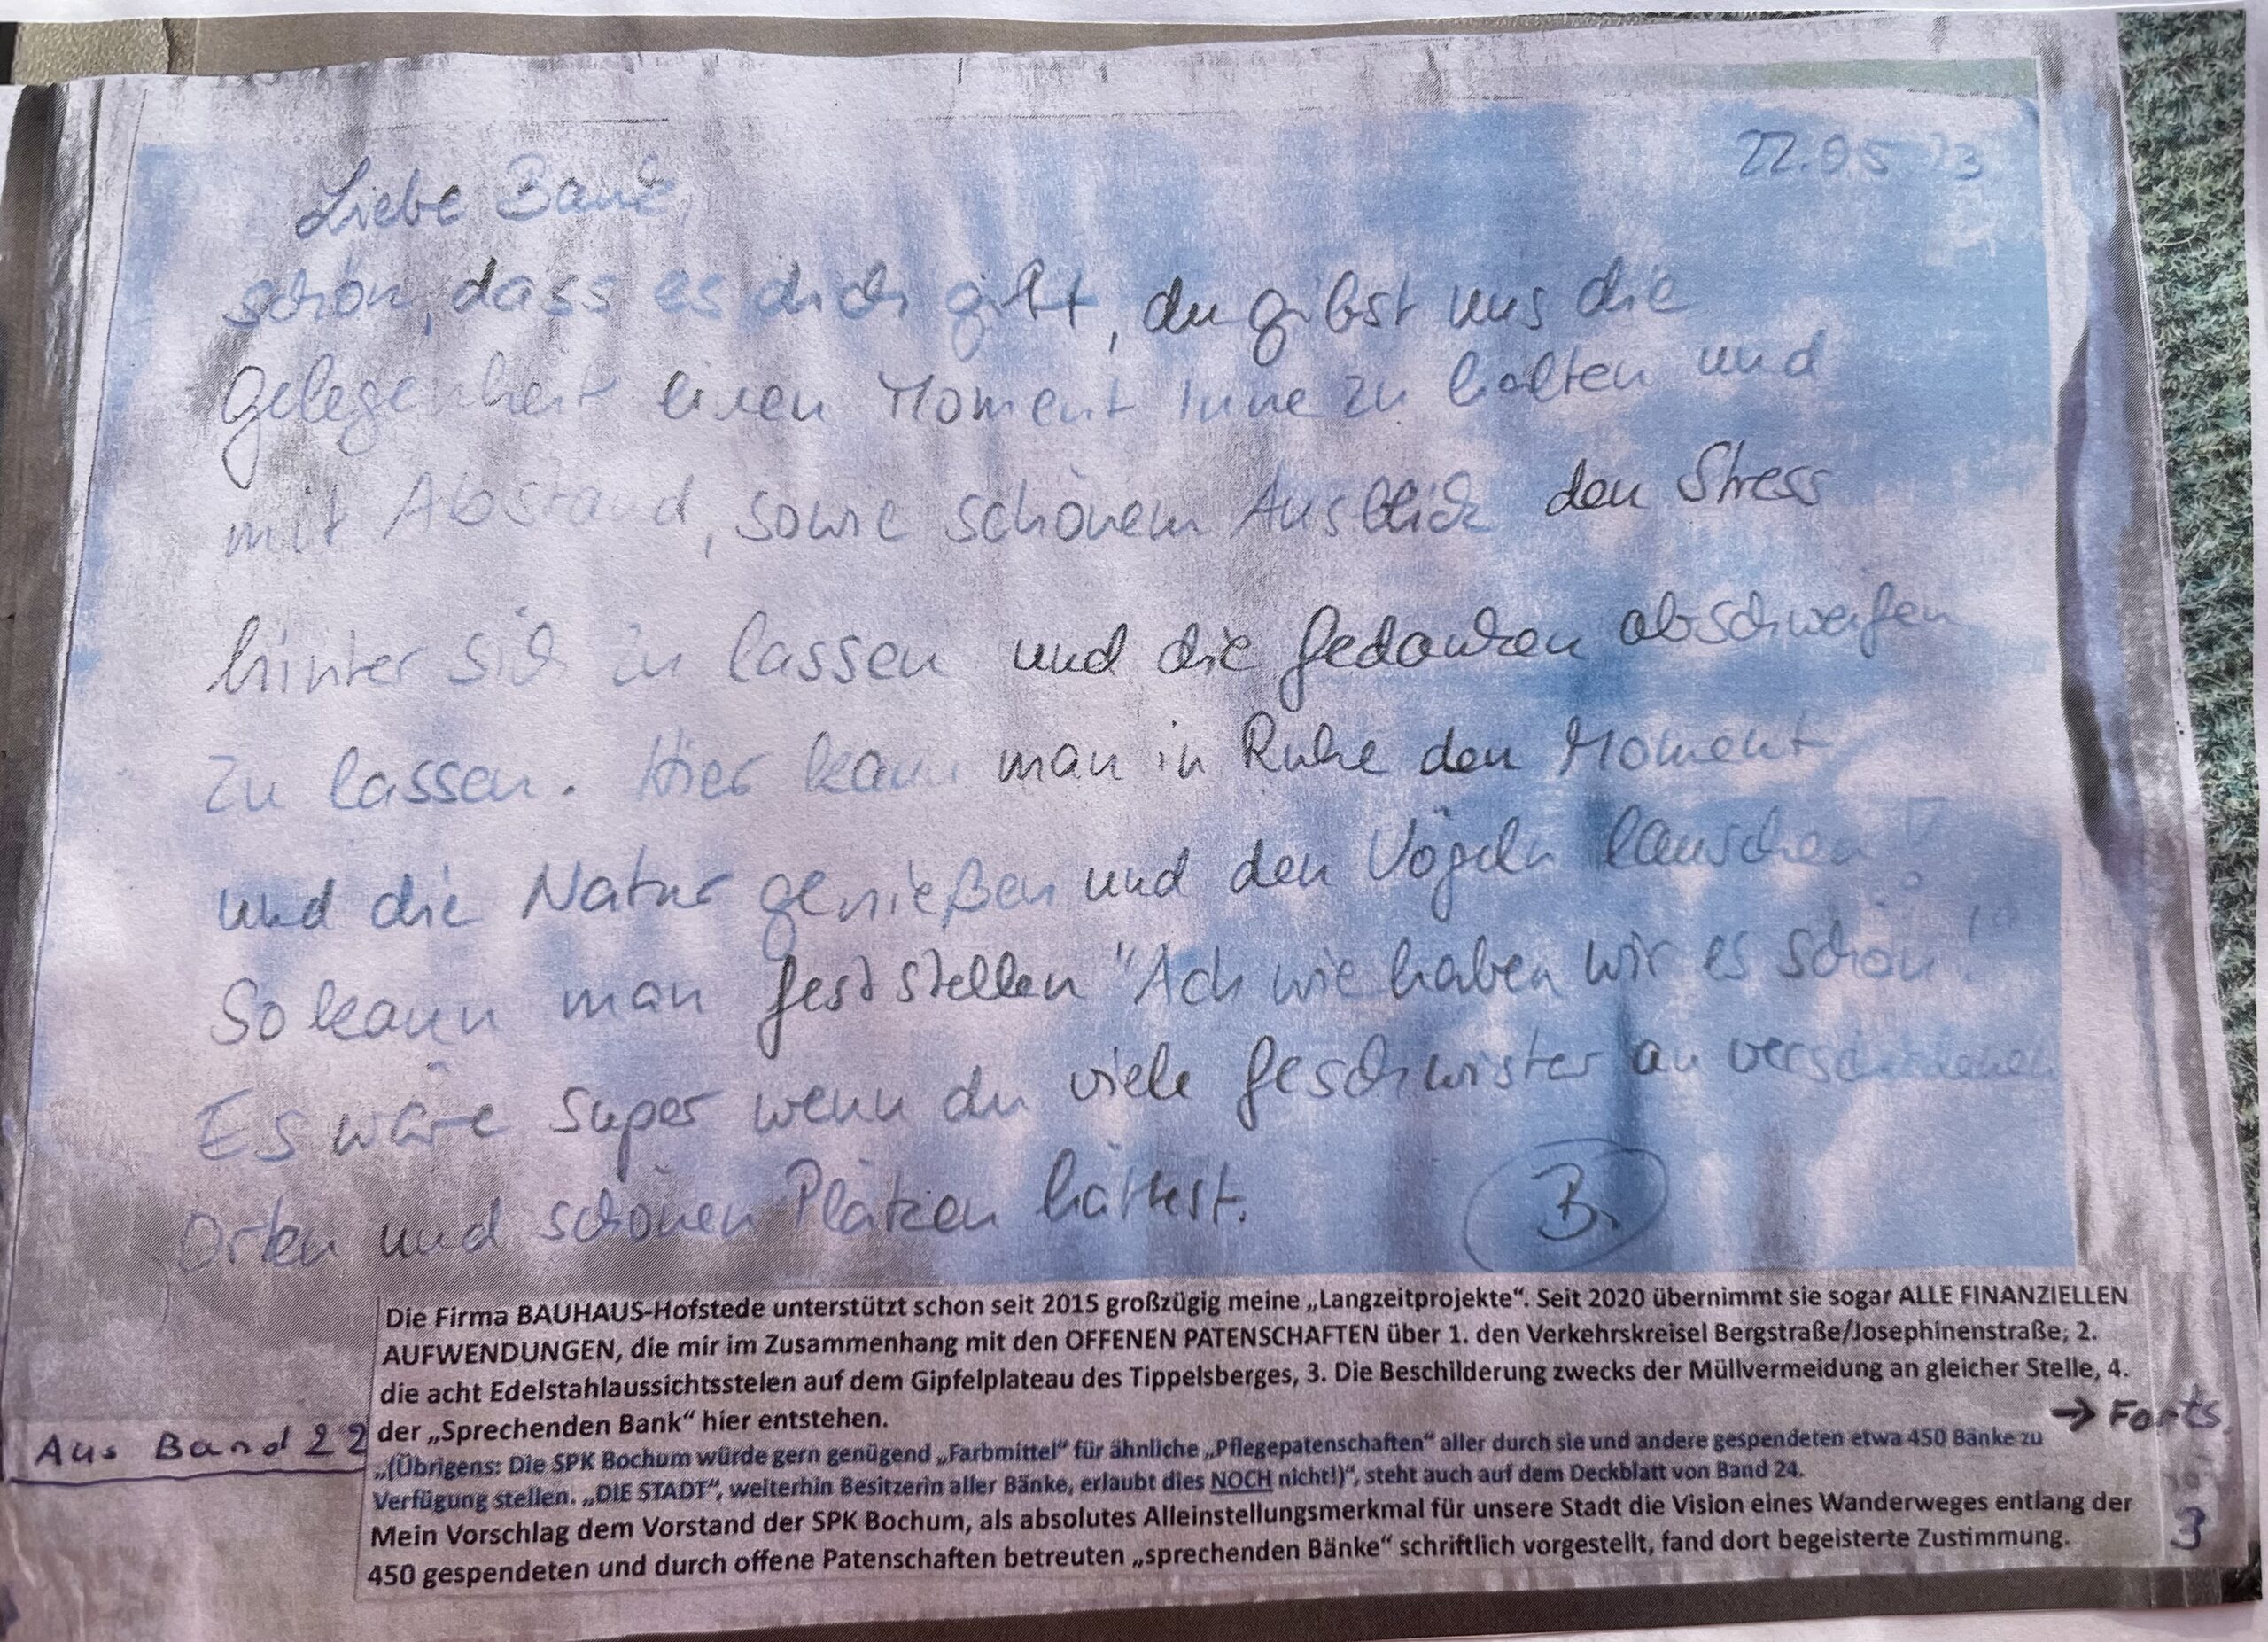 22.05 23
Liebe Bank,
schön, dass es dich gibt, du gibst uns die
Gelegenheit einen Moment inne zu halten und
mit Abstand, sowie schönem Ausblick den Stress
hinter sich zu lassen und die Gedanken abschweifen
zu lassen. Hier kann man in Ruhe den Moment
und die Natur genießen und den Vögeln lauschen!
So kann man feststellen "Ach wie haben wir es schön!"
Es wäre super wenn du viele Geschwister an verschiedenen
Orten und schönen Plätzen hättest.
B.
Die Firma BAUHAUS-Hofstede unterstützt schon seit 2015 großzügig meine „Langzeitprojekte“. Seit 2020 übernimmt sie sogar ALLE FINANZIELLEN
AUFWENDUNGEN, die mir im Zusammenhang mit den OFFENEN PATENSCHAFTEN über 1. den Verkehrskreisel Bergstraße/Josephinenstraße, 2.
die acht Edelstahlaussichtsstelen auf dem Gipfelplateau des Tippelsberges, 3. Die Beschilderung zwecks der Müllvermeidung an gleicher Stelle, 4.
der „Sprechenden Bank“ hier entstehen.
→ Forts.
Aus Band 22
„(Übrigens: Die SPK Bochum würde gern genügend „Farbmittel“ für ähnliche „Pflegepatenschaften“ aller durch sie und andere gespendeten etwa 450 Bänke zu
Verfügung stellen. „DIE STADT“, weiterhin Besitzerin aller Bänke, erlaubt dies NOCH nicht!)“, steht auch auf dem Deckblatt von Band 24.
Mein Vorschlag dem Vorstand der SPK Bochum, als absolutes Alleinstellungsmerkmal für unsere Stadt die Vision eines Wanderweges entlang der
450 gespendeten und durch offene Patenschaften betreuten „sprechenden Bänke“ schriftlich vorgestellt, fand dort begeisterte Zustimmung.
3